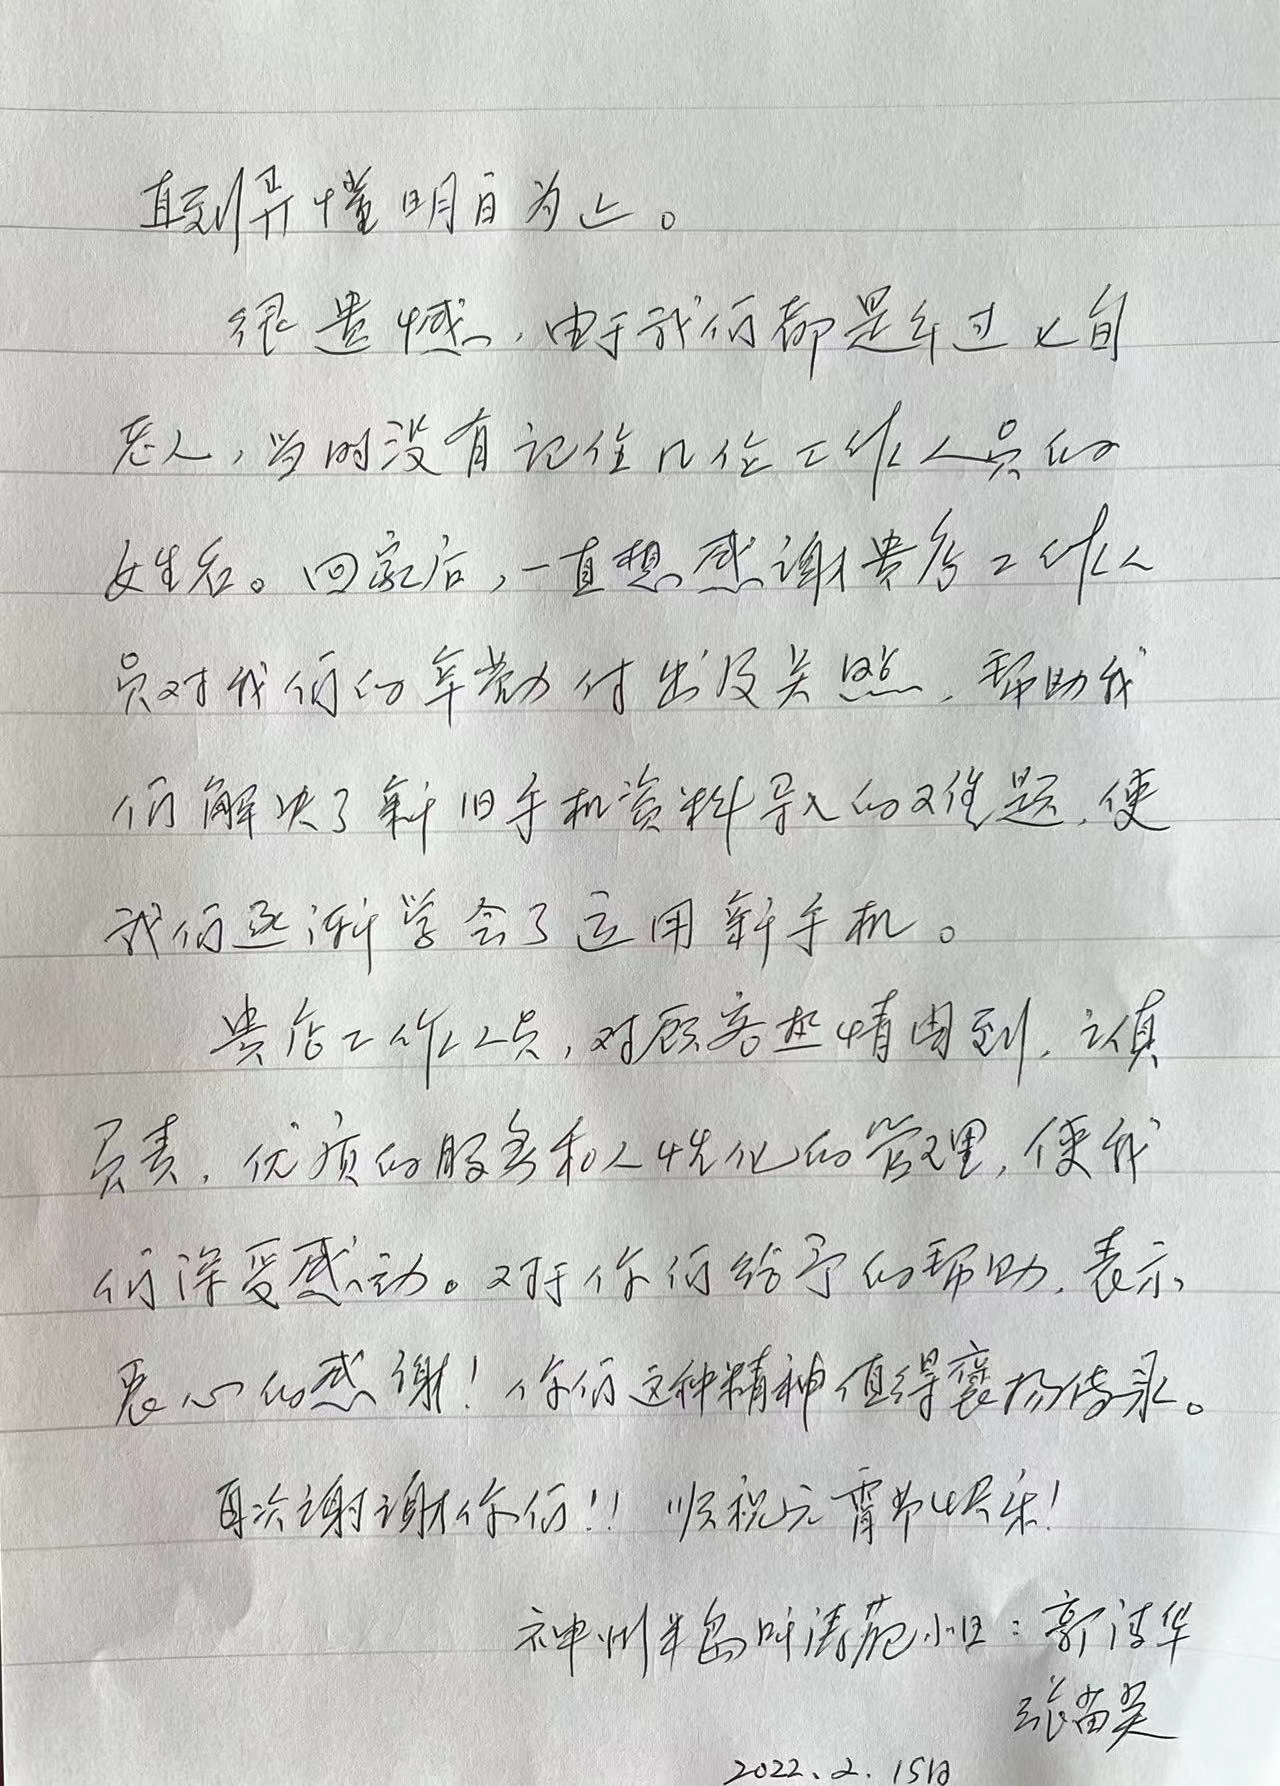 直到弄懂明白为止。
很遗憾,由于我们都是年过七旬
老人,当时没有记住几位工作人员的
姓名。回家后,一直想感谢贵店工作人
员对我们的辛勤付出及关照,帮助我
们解决了新旧手机资料导入的难题,使
我们逐渐学会了运用新手机。
贵店工作人员,对顾客热情周到,认真
负责,优质的服务和人性化的管理,使我
们深受感动。对于你们给予的帮助,表示
衷心的感谢!你们这种精神值得褒扬传承。
再次谢谢你们!!顺祝元宵节快乐!
神州半岛听涛苑小区:郭清华
张苗英
2022.2.15日